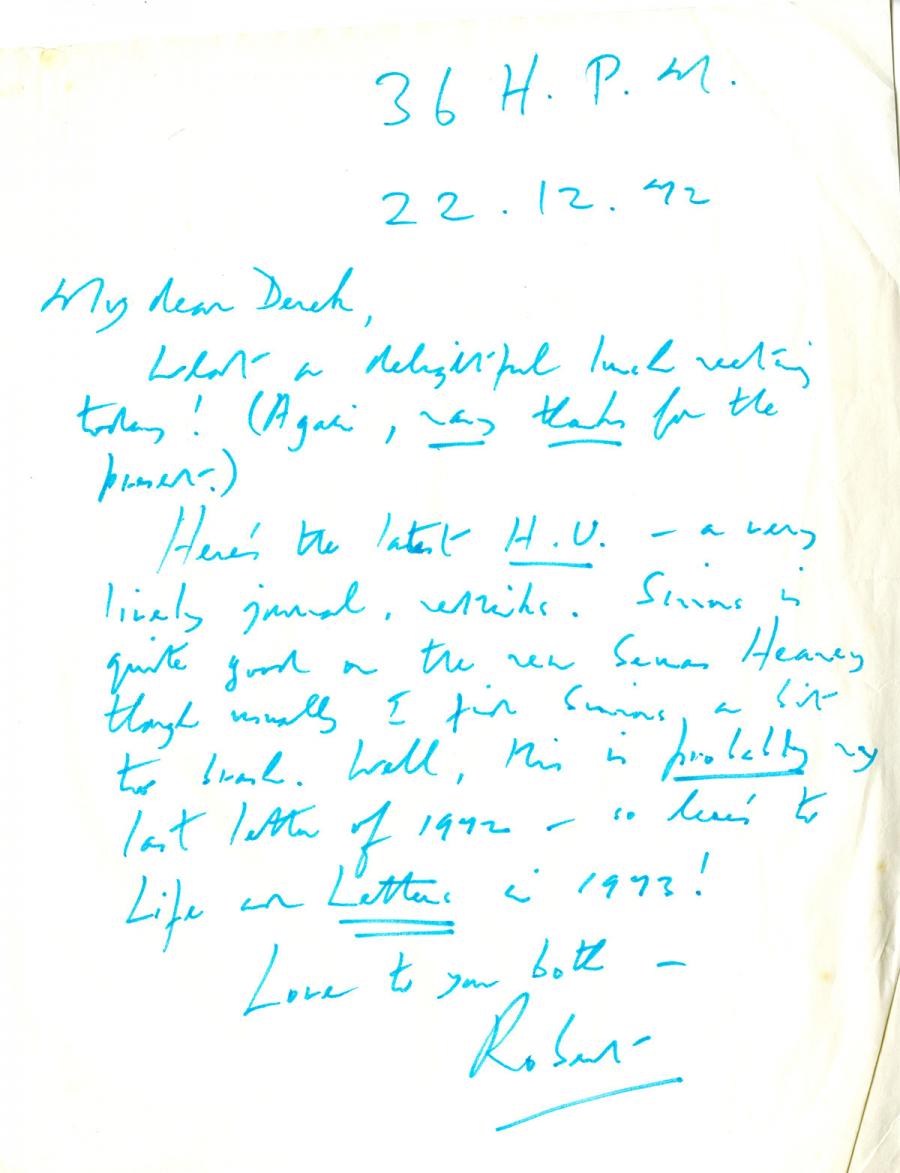 36 H. P. M.
22.12.72
My dear Derek,
What a delightful lunch meeting
today! (Again, many thanks for the
present.)
Here's the latest H.U. – a very
lively journal, methinks. Simmons is
quite good on the new Seamus Heaney
though usually I find Simmons a bit
too brash. Well, this is probably my
last letter of 1972 – so here's to
Life and Letters in 1973!
Love to you both –
Robert